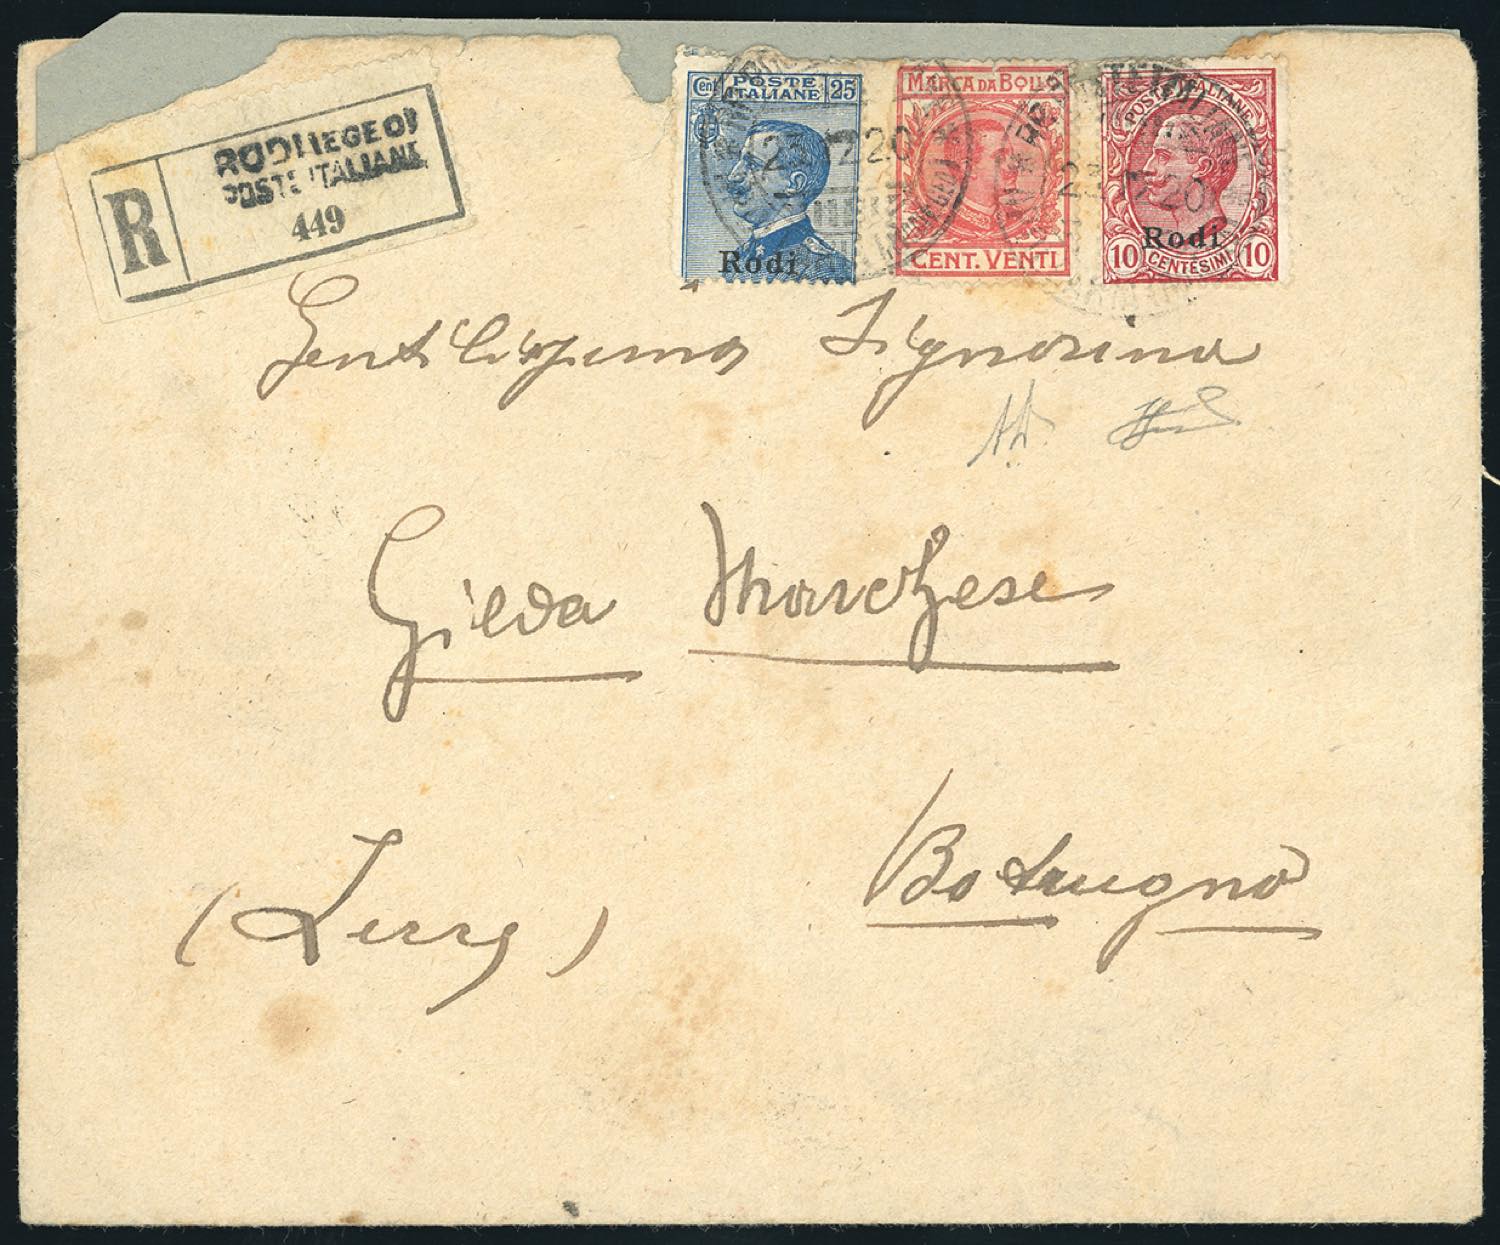 R
RODI (EGEO)
POSTE ITALIANE
449
Cent. POSTE ITALIANE 25
Rodi
MARCA DA BOLLO
CENT. VENTI
POSTE ITALIANE
Rodi
10 CENTESIMI 10
23 12 20
23 12 20
Gentilissima Signorina
Gilda Marchese
Botrugno
(Lecce)